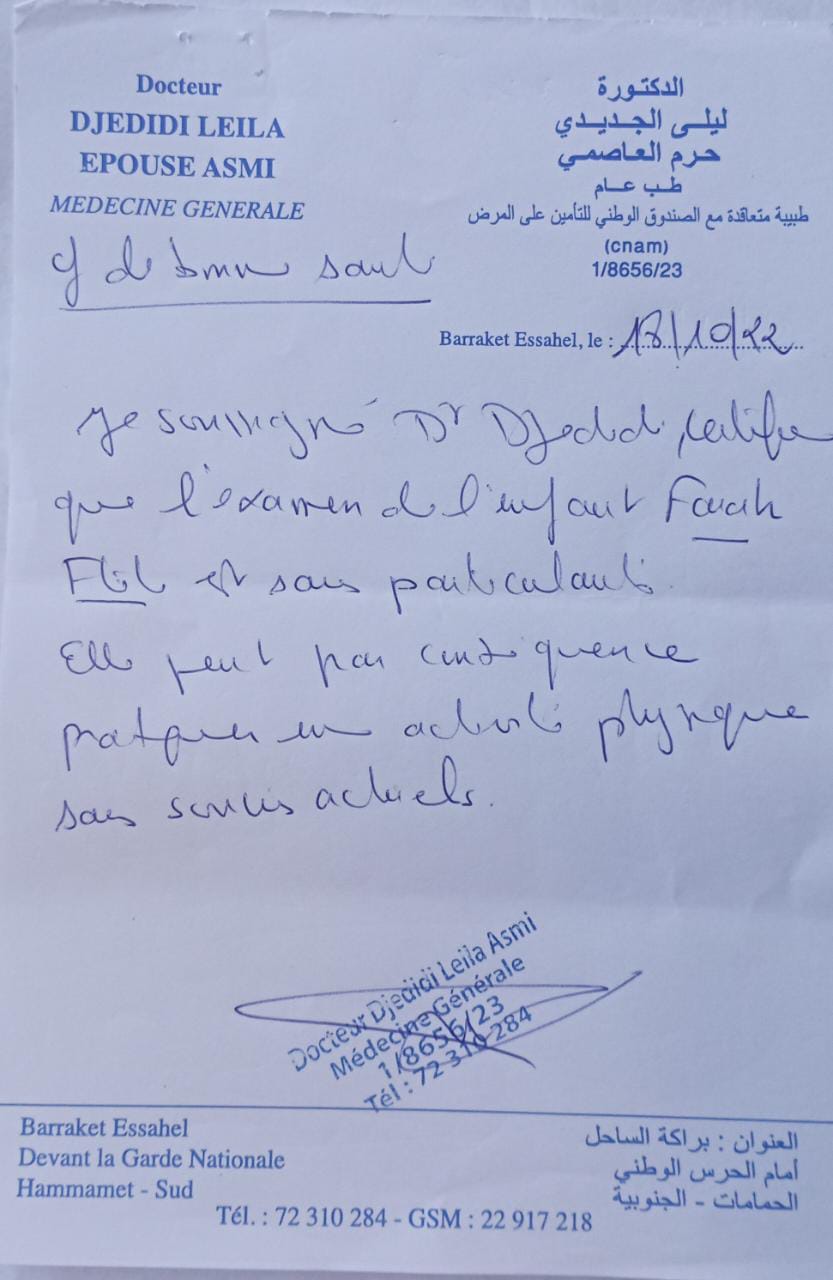 Docteur
DJEDIDI LEILA
EPOUSE ASMI
MEDECINE GENERALE
الدكتورة
ليلى الجديدي
حرم العاصمي
طب عام
طبيبة متعاقدة مع الصندوق الوطني للتأمين على المرض
(cnam)
1/8656/23
de bonne santé
Barraket Essahel, le : 18/10/22
Je soussigné Dr Djedidi, certifie
que l'examen de l'enfant Farah
est sans particularité.
Elle peut par conséquence
pratiquer une activité physique
sans soucis actuels.
Docteur Djedidi Leila Asmi
Médecine Générale
1/8656/23
Tél : 72 310 284
Barraket Essahel
Devant la Garde Nationale
Hammamet - Sud
العنوان : براكة الساحل
أمام الحرس الوطني
الحمامات - الجنوبية
Tél. : 72 310 284 - GSM : 22 917 218